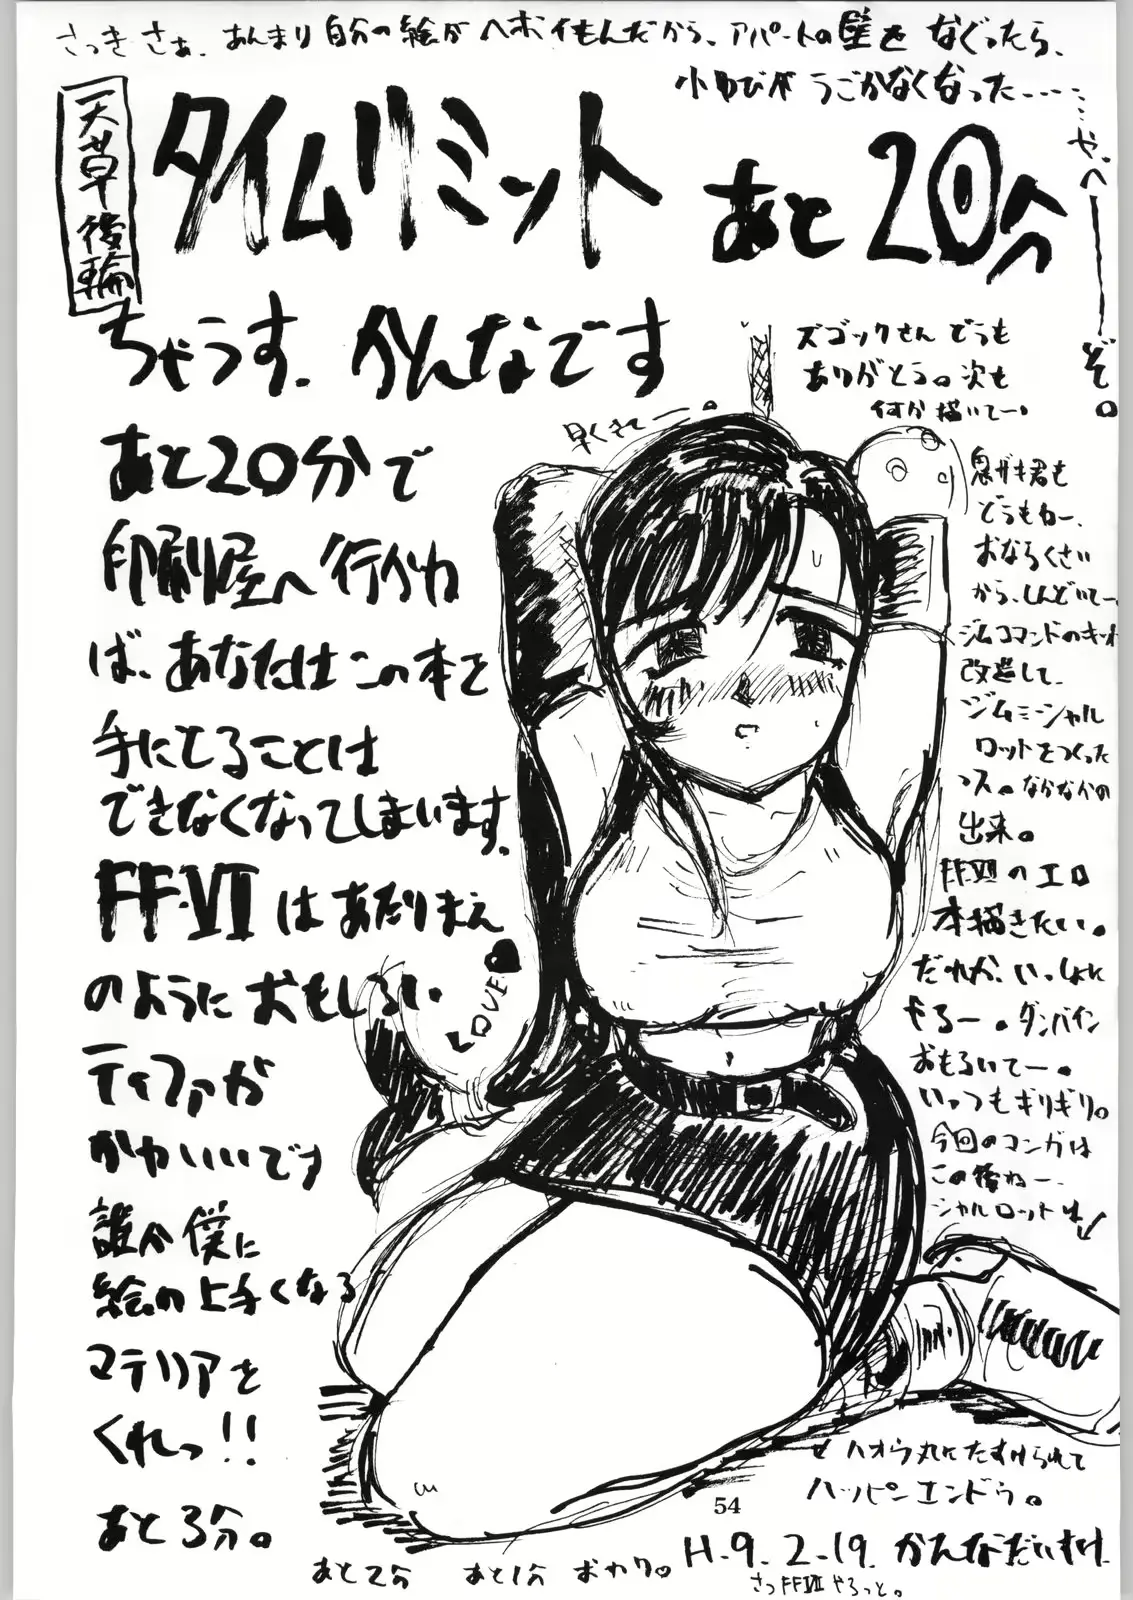 さっきさぁ、あんまり自分の絵がヘボイもんだから、アパートの壁をなぐったら、
小ゆびがうごかなくなった……
…やべーーぞ。
天草後輪
タイムリミット あと20分
ちゃうす、かんなです
あと20分で
印刷屋へ行かね
ば、あなたはこの本を
手にとることは
できなくなってしまいます。
FF・VIIはあたりまえ
のようにおもしろい
ティファが
かわいいです
誰か僕に
絵の上手くなる
マテリアを
くれっ!!
あと3分。
あと2分 あと1分 おわり。
ズゴックさんどうも
ありがとう。次も
何か描いてー。
早くきてー。
LOVE
君も
どうもねー、
おならくさい
から、しんどいてー、
ジムコマンドのキット
改造して、
ジムミーシャル
ロットをつくった
っス。なかなかの
出来。
FFVIIのエロ
本描きたい。
だれか、いっしょに
やるー。ダンバイン
おもろいてー。
いっつもギリギリ。
今回のマンガは
この後ねー、
シャルロットは
ハオウ丸にたすけられて
ハッピンエンドゥ。
54
H.9.2.19. かんなだいすけ
さっFFVIIやろっと。